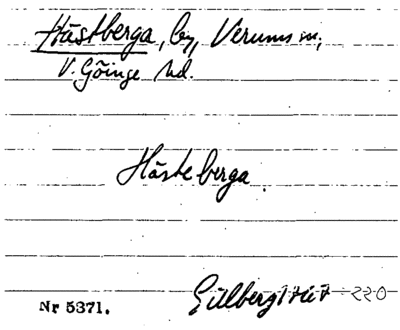 Hästberga, by, Verums sn,
V. Göinge hd.
Hästeberga.
Nr 5371.
Gillberg 220